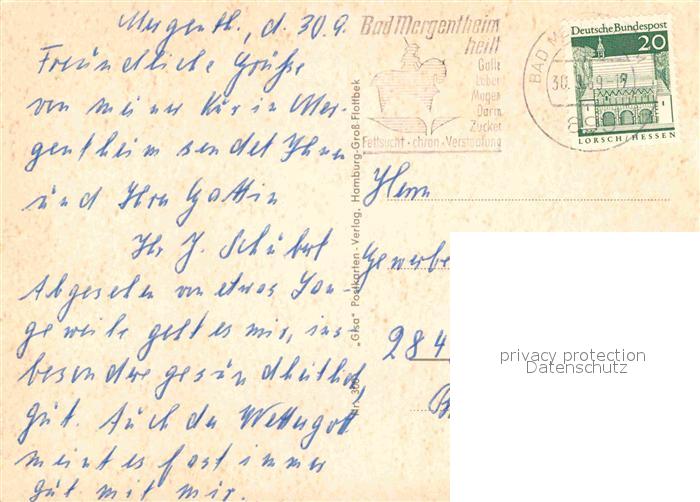 Mergenth., d. 30.9.
Freundliche Grüße
von meiner Kur in Mer-
gentheim sendet Ihnen
und Ihrer Gattin
Ihr J. Schubert
Abgesehen von etwas Lan-
geweile geht es mir, ins
besondere gesundheitlich
gut. Auch der Wettergott
meint es fast immer
gut mit mir.
Bad Mergentheim
heilt
Galle
Leber
Magen
Darm
Zucker
Fettsucht · chron · Verstopfung
BAD M
30. 9. 69 - 1
Deutsche Bundespost
20
LORSCH/HESSEN
„Gisa" Postkarten-Verlag, Hamburg-Groß Flottbek
Herrn
Gewerbe
284
privacy protection
Datenschutz